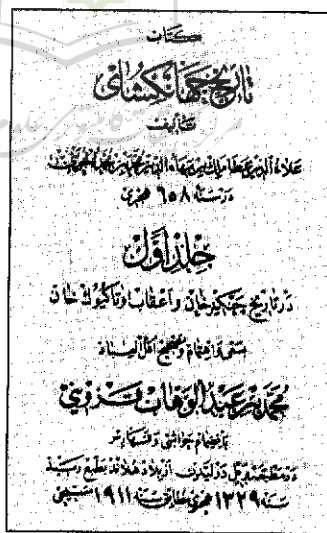 كتاب
تاريخ جهانگشای
تأليف
علاء الدين عطا ملك بن بهاء الدين محمد بن محمد الجوينى
در سنهٔ ٦٥٨ هجرى
جلد اوّل
در تاريخ چنگيز خان و اعقاب او تا كيوك خان
بسعى و اهتمام و تصحيح اقلّ العباد
محمد بن عبد الوهّاب قزوينى
بانضمام حواشى و فهارس
در مطبعهٔ بريل در ليدن از بلاد هلاند بطبع رسيد
سنهٔ ١٣٢٩ هجرى مطابق سنهٔ ١٩١١ مسيحى